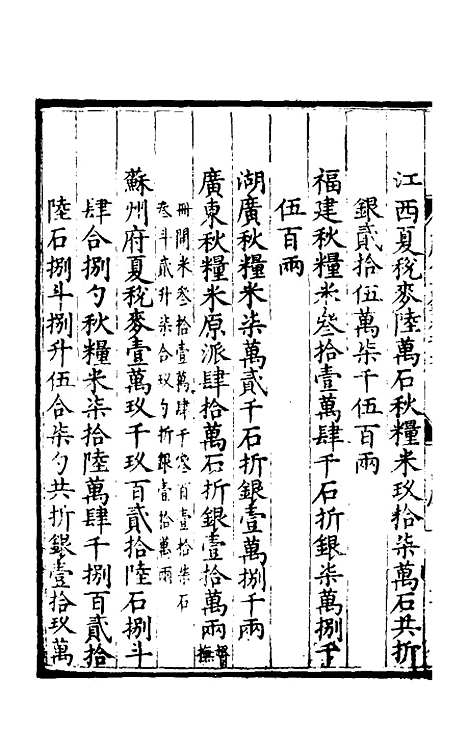 江西夏稅麥陸萬石秋糧米玖拾柒萬石共折
銀貳拾伍萬柒千伍百兩
福建秋糧米叁拾壹萬肆千石折銀柒萬捌千
伍百兩
湖廣秋糧米柒萬貳千石折銀壹萬捌千兩
廣東秋糧米原派肆拾萬石折銀壹拾萬兩督撫
冊開米叁拾壹萬肆千叁百壹拾柒石
叁斗貳升柒合玖勺折銀壹拾萬兩
蘇州府夏稅麥壹萬玖千玖百貳拾陸石捌斗
肆合捌勺秋糧米柒拾陸萬肆千捌百貳拾
陸石捌斗捌升伍合柒勺共折銀壹拾玖萬